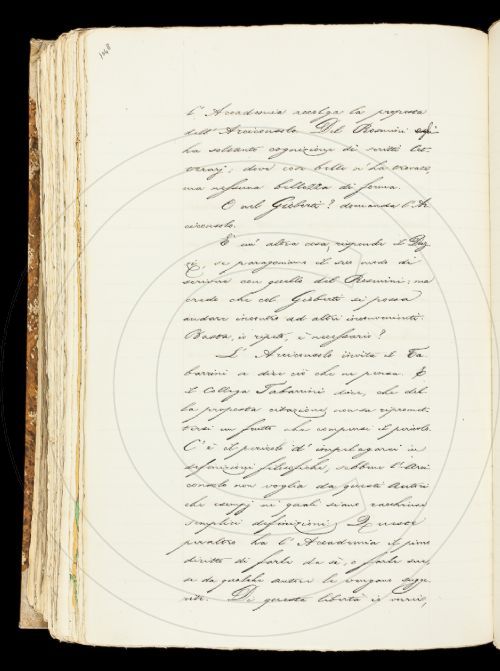 1048
l'Accademia accolga la proposta
dell'Arciconsolo. Del Rosmini egli
ha soltanto cognizione di scritti let-
terarj; dove cose belle vi ha trovate,
ma nessuna bellezza di forma.
O nel Gioberti? domanda l'Ar
ciconsolo.
È un'altra cosa, risponde il
se paragoniamo il suo modo di
scrivere con quello del Rosmini; ma
crede che col Gioberti si possa
andare incontro ad altri inconvenienti.
Basta, io ripeto, è necessario?
L'Arciconsolo invita il Ta
barrini a dire ciò che ne pensa. E
il Collega Tabarrini dice, che del
la proposta citazione, non sa ripromet
tersi un frutto che compensi il pericolo.
C'è il pericolo d'impelagarsi in
definizioni filosofiche, sebbene l'Arci
consolo non voglia da questi Autori
che esempj ne' quali siano racchiuse
semplici definizioni. Queste
peraltro ha l'Accademia il pieno
diritto di farle da sè, o farle sue,
se da qualche autore le vengono sugge
rite. Di questa libertà io vorrei,